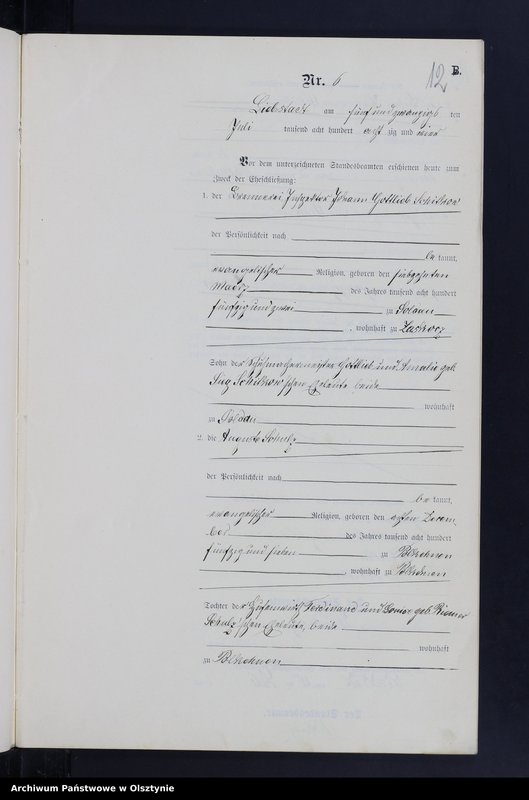 12 B.
Nr. 6
Liebstadt am fünfundzwanzigsten
Juli tausend acht hundert acht zig und vier
Vor dem unterzeichneten Standesbeamten erschienen heute zum
Zweck der Eheschließung:
1. der Brennerei Inspektor Johann Gottlieb
der Persönlichkeit nach
be kannt,
evangelischer Religion, geboren den siebzehnten
März des Jahres tausend acht hundert
fünfzig und zwei zu Soldau
, wohnhaft zu
Sohn der Schuhmachermeister Gottlieb und Amalie geb.
'schen Eheleute, beide
wohnhaft
zu Soldau
2. die Auguste Schulz
der Persönlichkeit nach
be kannt,
evangelischer Religion, geboren den ersten Dezem
ber des Jahres tausend acht hundert
fünfzig und sieben zu
, wohnhaft zu
Tochter der Ferdinand und geb.
Schulz'schen Eheleute, beide
wohnhaft
zu
Archiwum Państwowe w Olsztynie